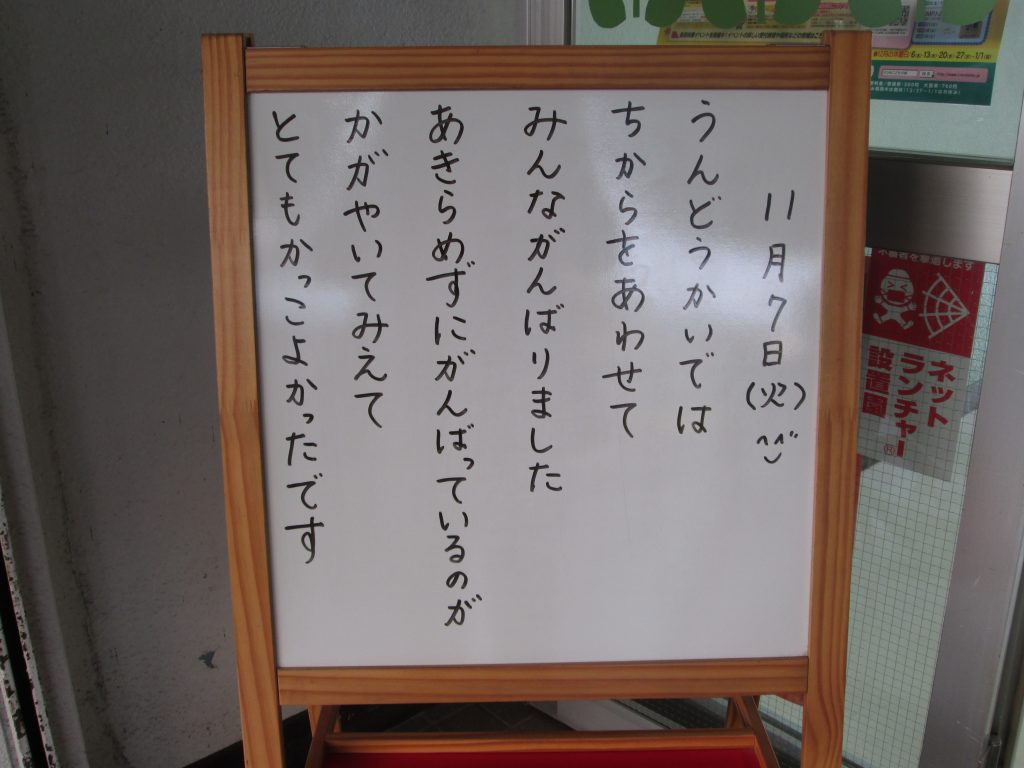 11月7日(火)
うんどうかいでは
ちからをあわせて
みんながんばりました
あきらめずにがんばっているのが
かがやいてみえて
とてもかっこよかったです
ネット
ランチャー
設置園
®